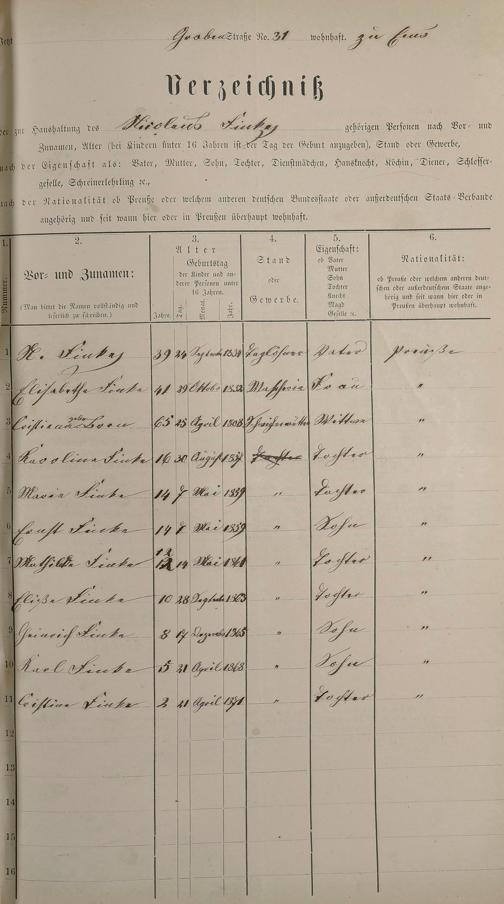 Graben Straße No. 31 wohnhaft. zu Ems
Verzeichniß
der zur Haushaltung des Nicolaus Finke gehörigen Personen nach Vor- und
Zunamen, Alter (bei Kindern unter 16 Jahren ist der Tag der Geburt anzugeben), Stand oder Gewerbe,
nach der Eigenschaft als: Vater, Mutter, Sohn, Tochter, Dienstmädchen, Hausknecht, Köchin, Diener, Schlosser-
geselle, Schreinerlehrling ꝛc.,
nach der Nationalität ob Preuße oder welchem anderen deutschen Bundesstaate oder außerdeutschen Staats-Verbande
angehörig und seit wann hier oder in Preußen überhaupt wohnhaft.
1. 2. 3. 4. 5. 6.
Nummer.
Vor- und Zunamen:
(Man bittet die Namen vollständig und
leserlich zu schreiben.)
Alter
Geburtstag
der Kinder und an-
derer Personen unter
16 Jahren.
Jahre. Tag. Monat. Jahr.
Stand
oder
Gewerbe.
Eigenschaft:
ob Vater
Mutter
Sohn
Tochter
Knecht
Magd
Geselle ꝛc.
Nationalität:
ob Preuße oder welchem anderen deut-
schen oder außerdeutschen Staate ange-
hörig und seit wann hier oder in
Preußen überhaupt wohnhaft.
1 N. Finke 39 24 Septemb Taglöhner Vater Preuße
2 Elisabethe Finke 41 29 Octobr 1832 Wascherin Frau "
3 Cristiana 65 25 April 1808 Wittwe "
4 Karoline Finke 16 30 August 1857 Tochter Tochter "
5 Maria Finke 14 7 Mai 1859 " Tochter "
6 Ernst Finke 14 7 Mai 1859 " Sohn "
7 Mathilde Finke 12 14 Mai 1861 " Tochter "
8 Eliße Finke 10 28 Septembr 1863 " Tochter "
9 Heinrich Finke 8 17 Dezembr 1865 " Sohn "
10 Karl Finke 5 21 April 1868 " Sohn "
11 Cristine Finke 2 21 April 1871 " Tochter "
12
13
14
15
16